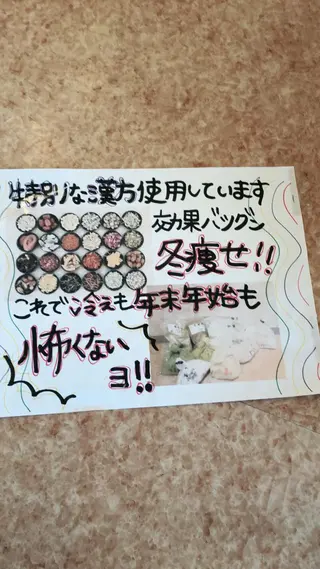 特別な漢方使用しています
効果バツグン
冬痩せ!!
これで冷えも年末年始も
怖くない
ヨ!!